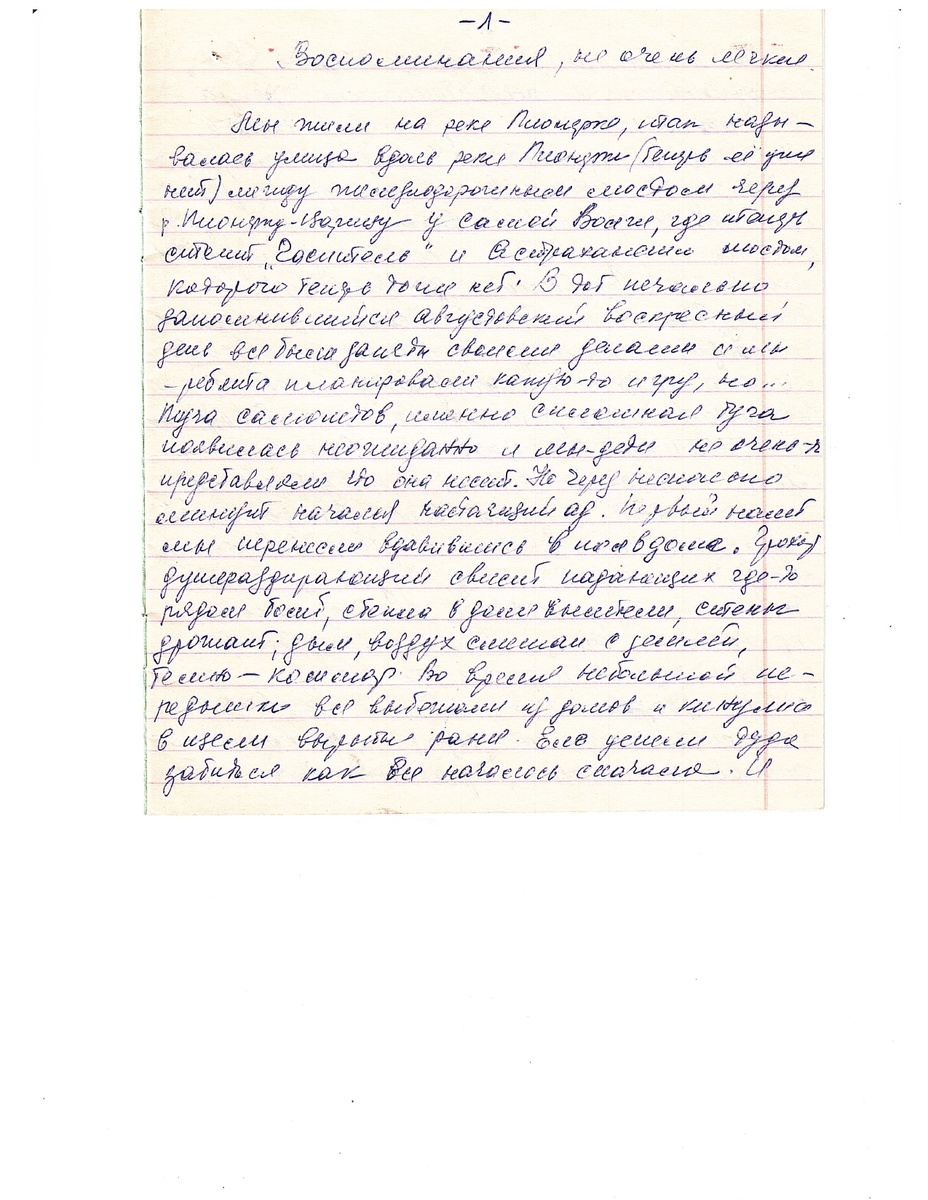 -1-
Воспоминания, не очень лёгкие.
Мы жили на реке Пионерке, итак назы-
валась улица вдоль реки Пионерки (теперь её уже
нет) между железнодорожным мостом через
р. Пионерку-Царицу у самой Волги, где теперь
стоит „Гаситель" и Астраханским мостом,
которого теперь тоже нет. В тот печально
запомнившийся августовский воскресный
день все были заняты своими делами и мы
-ребята планировали какую-то игру, но...
Туча самолётов, именно сплошная туча
появилась неожиданно и мы-дети не очень-то
представляли что она несёт. Но через несколько
минут начался настоящий ад. Первый налёт
мы пережили вдавившись в пол дома. Грохот
душераздирающий свист падающих где-то
рядом бомб, стёкла в доме вылетели, стены
дрожат, дым, воздух смешан с землёй,
темно — кошмар. Во время небольшой пе-
редышки все выбежали из домов и кинулись
в щели вырытые ранее. Еле успели туда
забиться как все началось сначала. И